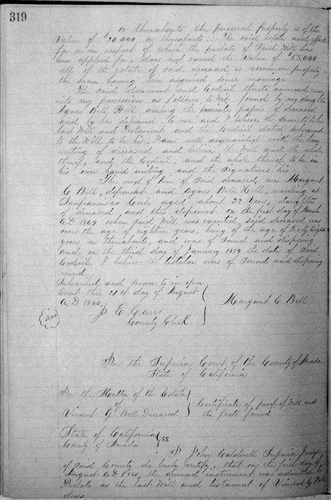 319
or thereabouts the personal property is of the
Value of $20,000 or thereabouts. The said estate and effects
for or in respect of which the probate of said Will has
been applied for, does not exceed the Value of $5,000
all of the estate of said deceased is common property
the same having been acquired since marriage
The said document and Codicil thereto annexed came
into my possession as follows to wit: found by my daughter
Agnes Bell Hill among the private papers of deceased
and by her delivered to me and I believe the same to be the
last Will and Testament and the Codicil dated subsequent
to the Will to be his. I am well acquainted with the hand
writing of deceased and believe the Will and the signature
thereof, and the Codicil, and the whole thereof to be in
his own hand writing, and the signatures his
The next of kin of said deceased are Margaret
C. Bell, deponent and Agnes Bell Hill, residing at
San Francisco Cala aged about 33 Years, daughter
of deceased, and this deponent. on the first day of March
A.D. 1869 when said Will was executed said deceased was
over the age of eighteen years, being of the age of Forty Eight
years or thereabouts, and was of sound and disposing mind
and on the third day of January 1879 the date of said
Codicil I believe the testator was of sound and disposing
mind.
Subscribed and sworn to in open
Court this 21st day of August
A.D. 1880.
Margaret C Bell
J E Carr
County Clerk
In the Superior Court of the County of Nevada
State of California
In the Matter of the Estate
of
Vincent G. Bell Deceased
Certificate of proof of Will and
the facts found.
State of California
County of Nevada
ss
I John Caldwell Superior Judge
of said County do hereby certify, that on the first day of
August A.D. 1880, the annexed instrument was admitted to
Probate as the last Will and testament of Vincent G Bell